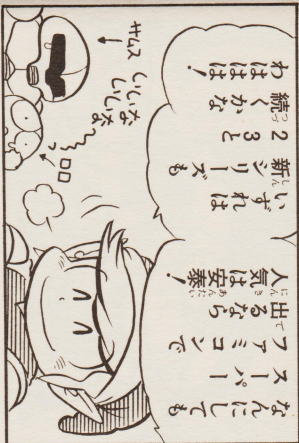 なんにしても
スーパー
ファミコンで
出るなら
人気は安泰!
いずれは
新シリーズも
2 3と
続くかな
わははは!
サムス
いいな
いいな
ロロ